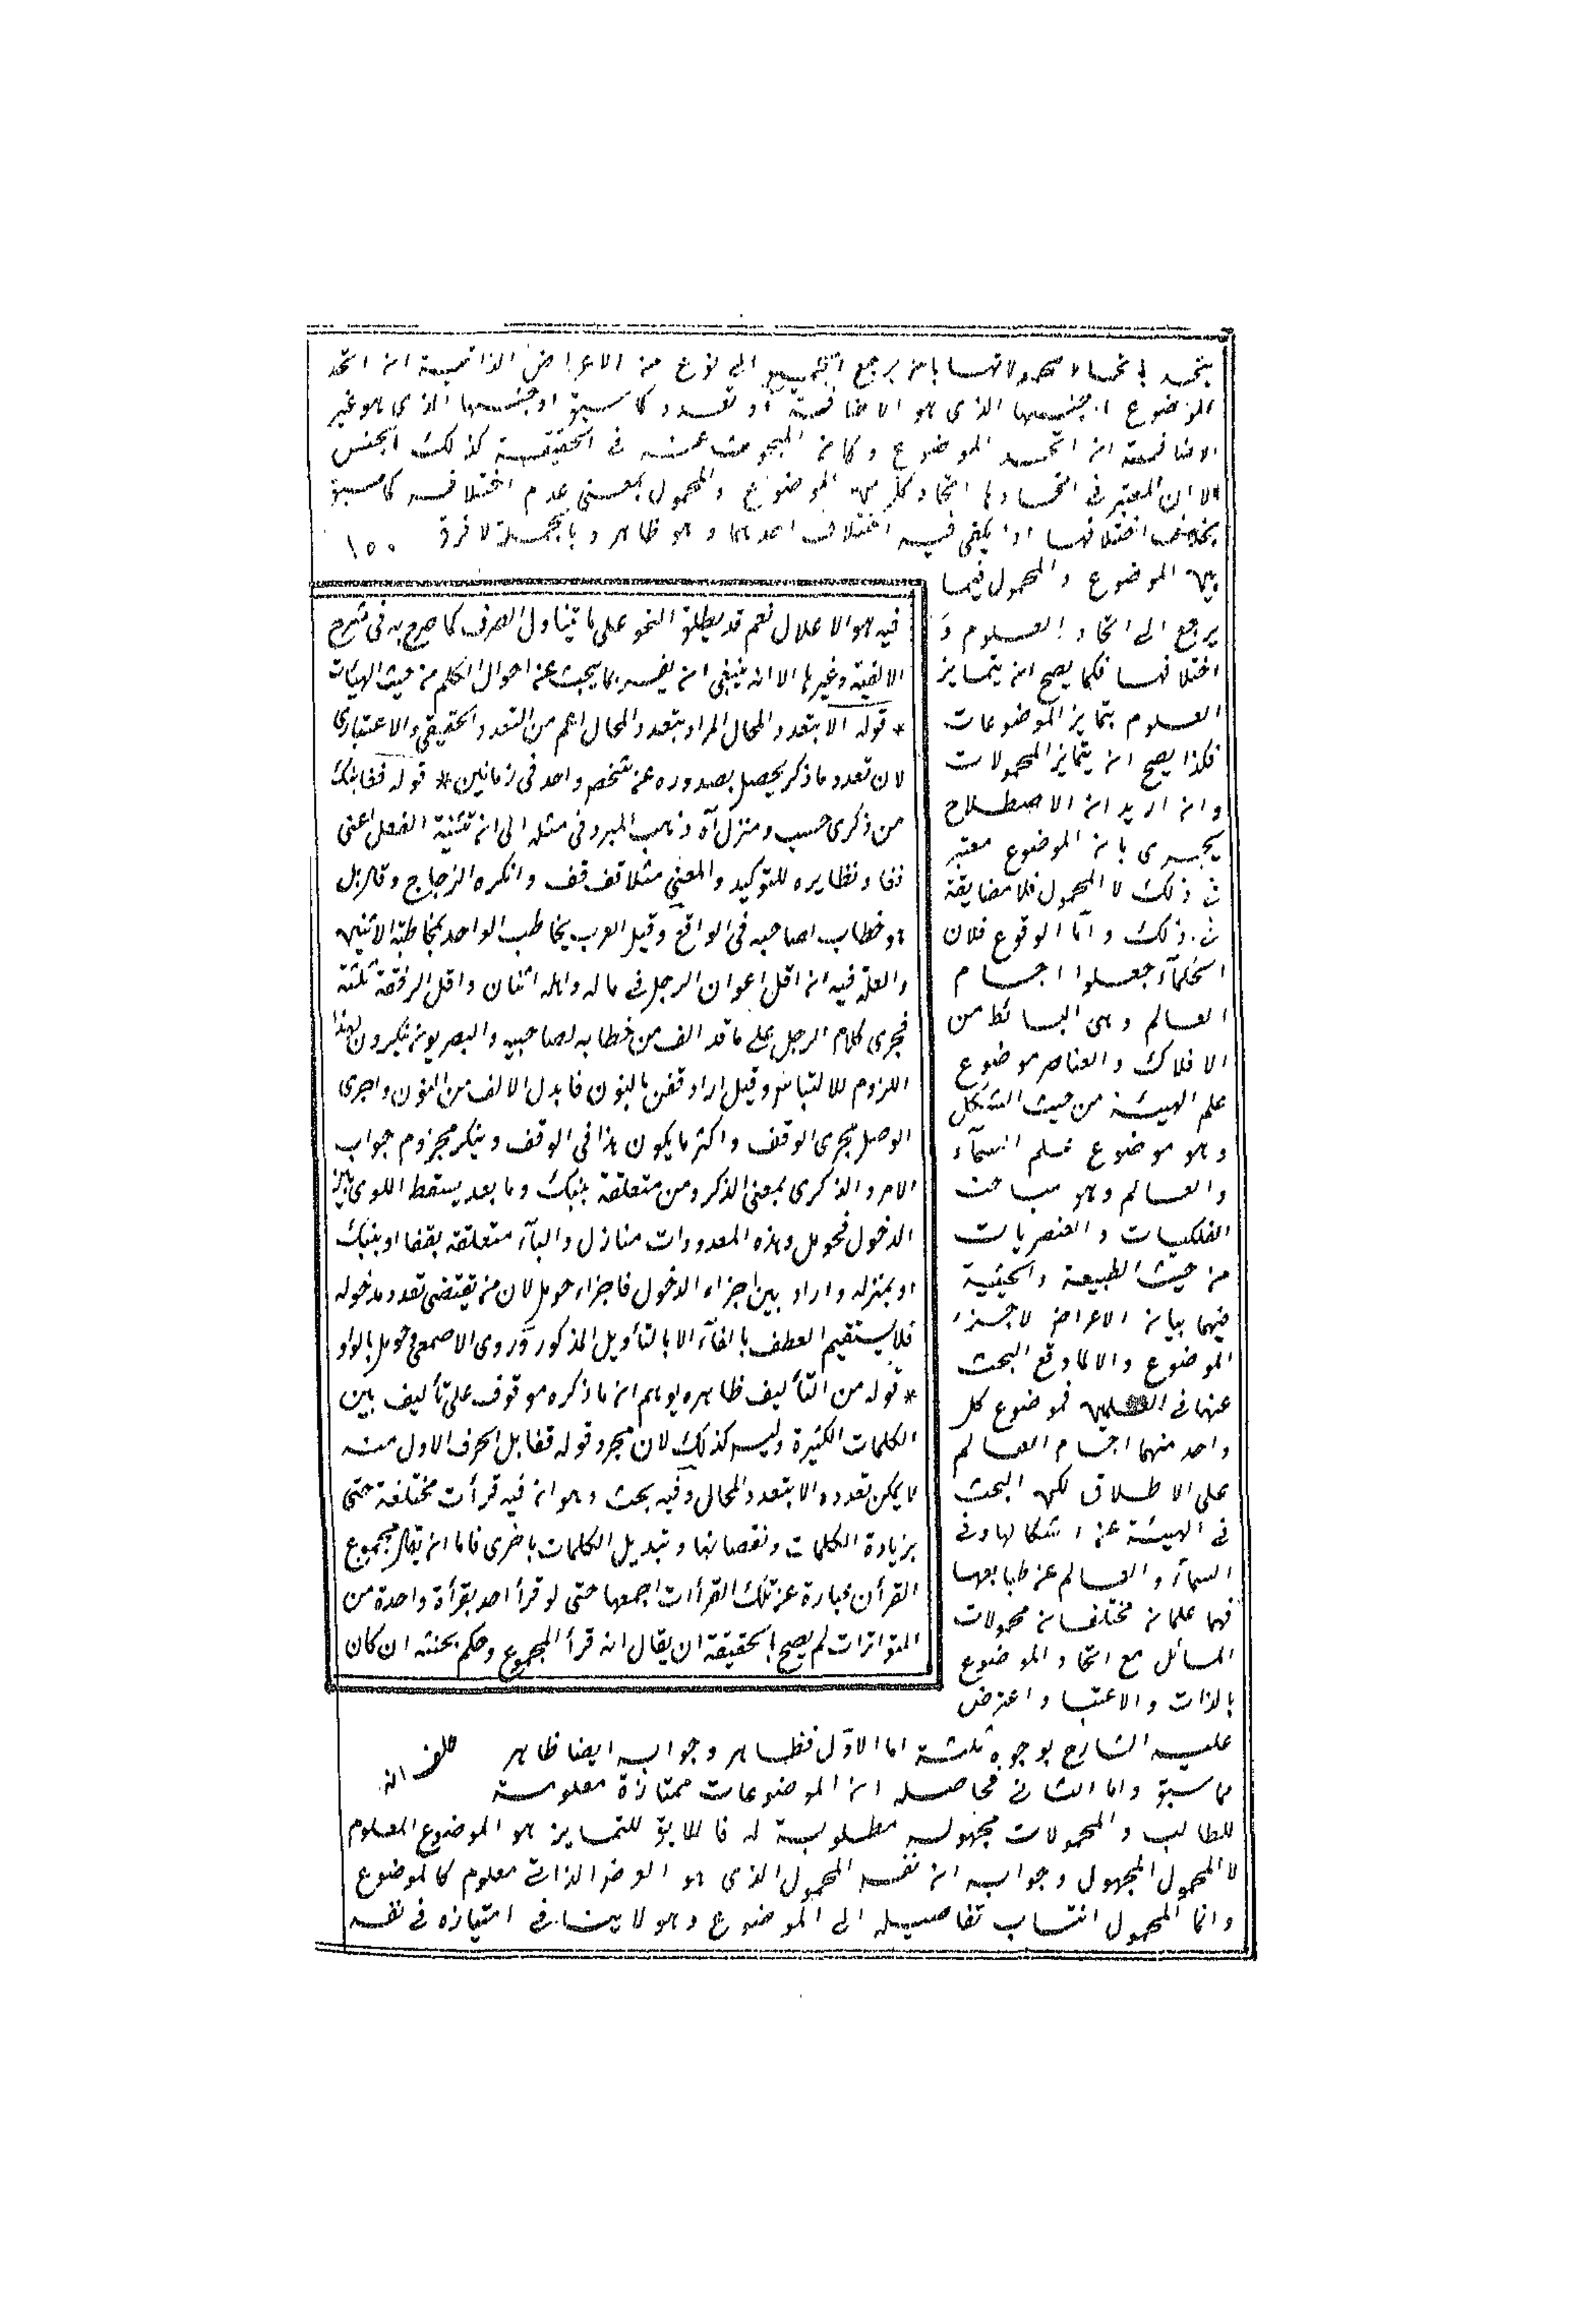 يتحد باتحاد محمولاتها بان يرجع الجميع الى نوع من الاعراض الذاتية ان اتحد
الموضوع او جنسها الذى هو الاضافية او تعدد كما سبق او جنسها الذى هو غير
الاضافية ان اتحد الموضوع وكان المبحوث عنه فى الحقيقة كذلك الجنس
الا ان المعتبر فى اتحادها اتحاد كل من الموضوع والمحمول بمعنى عدم اختلافه كما سبق
بخلاف اختلافها اذ يكفى فيه اختلاف احدهما وهو ظاهر وبالجملة لا فرق
١٥٥
بين الموضوع والمحمول فيما
يرجع الى اتحاد العلوم و
اختلافها فكما يصح ان يتمايز
العلوم بتمايز الموضوعات
فكذا يصح ان يتمايز المحمولات
وان اريد ان الاصطلاح
يجرى بان الموضوع معتبر
فى ذلك لا المحمول فلا مضايقة
فى ذلك واما الوقوع فلان
الحكمآء جعلوا اجسام
العالم وهى البسائط من
الافلاك والعناصر موضوع
علم الهيئة من حيث الشكل
وهو موضوع علم السمآء
والعالم وهو مباحث
الفلكيات والعنصريات
من حيث الطبيعة والحيثية
فيهما بيان الاعراض لا جزء
الموضوع والا لما وقع البحث
عنهما فى العلمين فموضوع كل
واحد منهما اجسام العالم
على الاطلاق لكن البحث
فى الهيئة عن اشكالها وفى
السمآء والعالم عن طبايعها
فهما علمان مختلفان محمولات
المسائل مع اتحاد الموضوع
بالذات والاعتبار واعترض
عليه الشارح بوجوه ثلثة اما الاول فظاهر وجوابه ايضا ظاهر
مما سبق واما الثانى فحاصله ان الموضوعات ممتازة معلومة
للطالب والمحمولات مجهولة مطلوبة له فاللايق للتمايز هو الموضوع المعلوم
لا المحمول المجهول وجوابه ان نفس المحمول الذى هو العرض الذاتى معلوم كالموضوع
وانما المجهول انتساب تفاصيله الى الموضوع وهو لا ينافى امتيازه فى نفسه
فيه هو الاعلال نعم قد يطلق النحو على ما يتناول الصرف كما صرح به فى شرح
الالفية وغيرها الا انه ينبغى ان يفسر بما يبحث عن احوال الكلم من حيث الهيئات
* قوله الا بتعدد المحال المراد بتعدد المحال اعم من التعدد الحقيقى والاعتبارى
لان تعدد ما ذكر يحصل بصدوره عن شخص واحد فى زمانين * قوله قفا نبك
من ذكرى حبيب ومنزل آه ذهب المبرد فى مثله الى ان تثنية الفعل اعنى
قفا ونظايره للتوكيد والمعنى مثلا قف قف وانكره الزجاج وقال بل
هو خطاب لصاحبيه فى الواقع وقيل العرب يخاطب الواحد بمخاطبة الاثنين
والعلة فيه ان اقل اعوان الرجل فى ماله واهله اثنان واقل الرفقة ثلثة
فجرى كلام الرجل على ما قد الف من خطابه لصاحبيه والبصريون ينكرون هذا
للزوم الالتباس وقيل اراد قفن بالنون فابدل الالف من النون واجرى
الوصل مجرى الوقف واكثر ما يكون هذا فى الوقف ونبك مجزوم جواب
الامر والذكرى بمعنى الذكر ومن متعلقة بنبك وما بعد بسقط اللوى بين
الدخول فحومل وهذه المعدودات منازل والبآء متعلقة بقفا او بنبك
او بمنزل واراد بين اجزاء الدخول فاجزاء حومل لان بين يقتضى تعدد مدخوله
فلا يستقيم العطف بالفآء الا بالتأويل المذكور وروى الاصمعى وحومل بالواو
* قوله من التأليف ظاهره يوهم ان ما ذكره موقوف على تأليف بين
الكلمات الكثيرة وليس كذلك لان مجرد قوله قفا بل الحرف الاول منه
لا يمكن تعدده الا بتعدد المحال وفيه بحث وهو ان فيه قرأت مختلفة حتى
بزيادة الكلمات ونقصانها وتبديل الكلمات باخرى فاما ان يقال مجموع
القرآن عبارة عن تلك القرأات اجمعها حتى لو قرأ احد بقرأة واحدة من
المتواترات لم يصح بالحقيقة ان يقال انه قرأ المجموع وحكم بحنثه ان كان
حلف انه